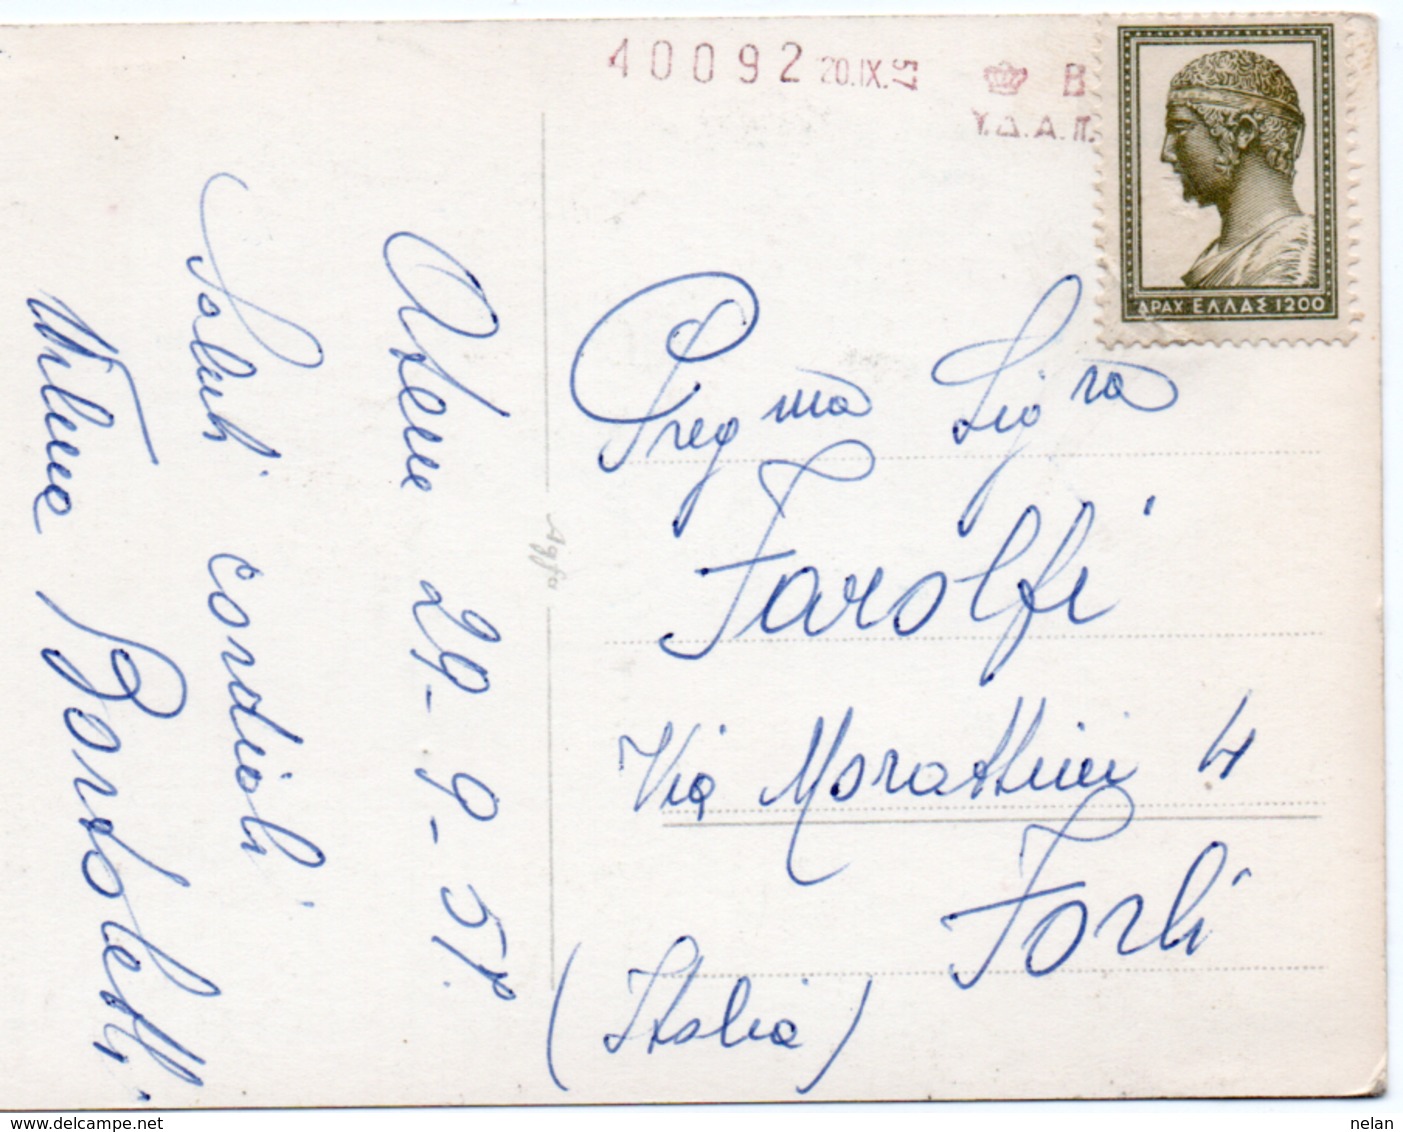 40092 20.IX.57 B
Υ.Δ.Α.Π.
ΔΡΑΧ. ΕΛΛΑΣ 1200
Atene 29-9-57
Saluti cordiali
Wilma Bortoletti
Preg.ma Sig.ra
Farolfi
Via Morattini 4
Forlì
(Italia)
Agfa
www.delcampe.net
nelan